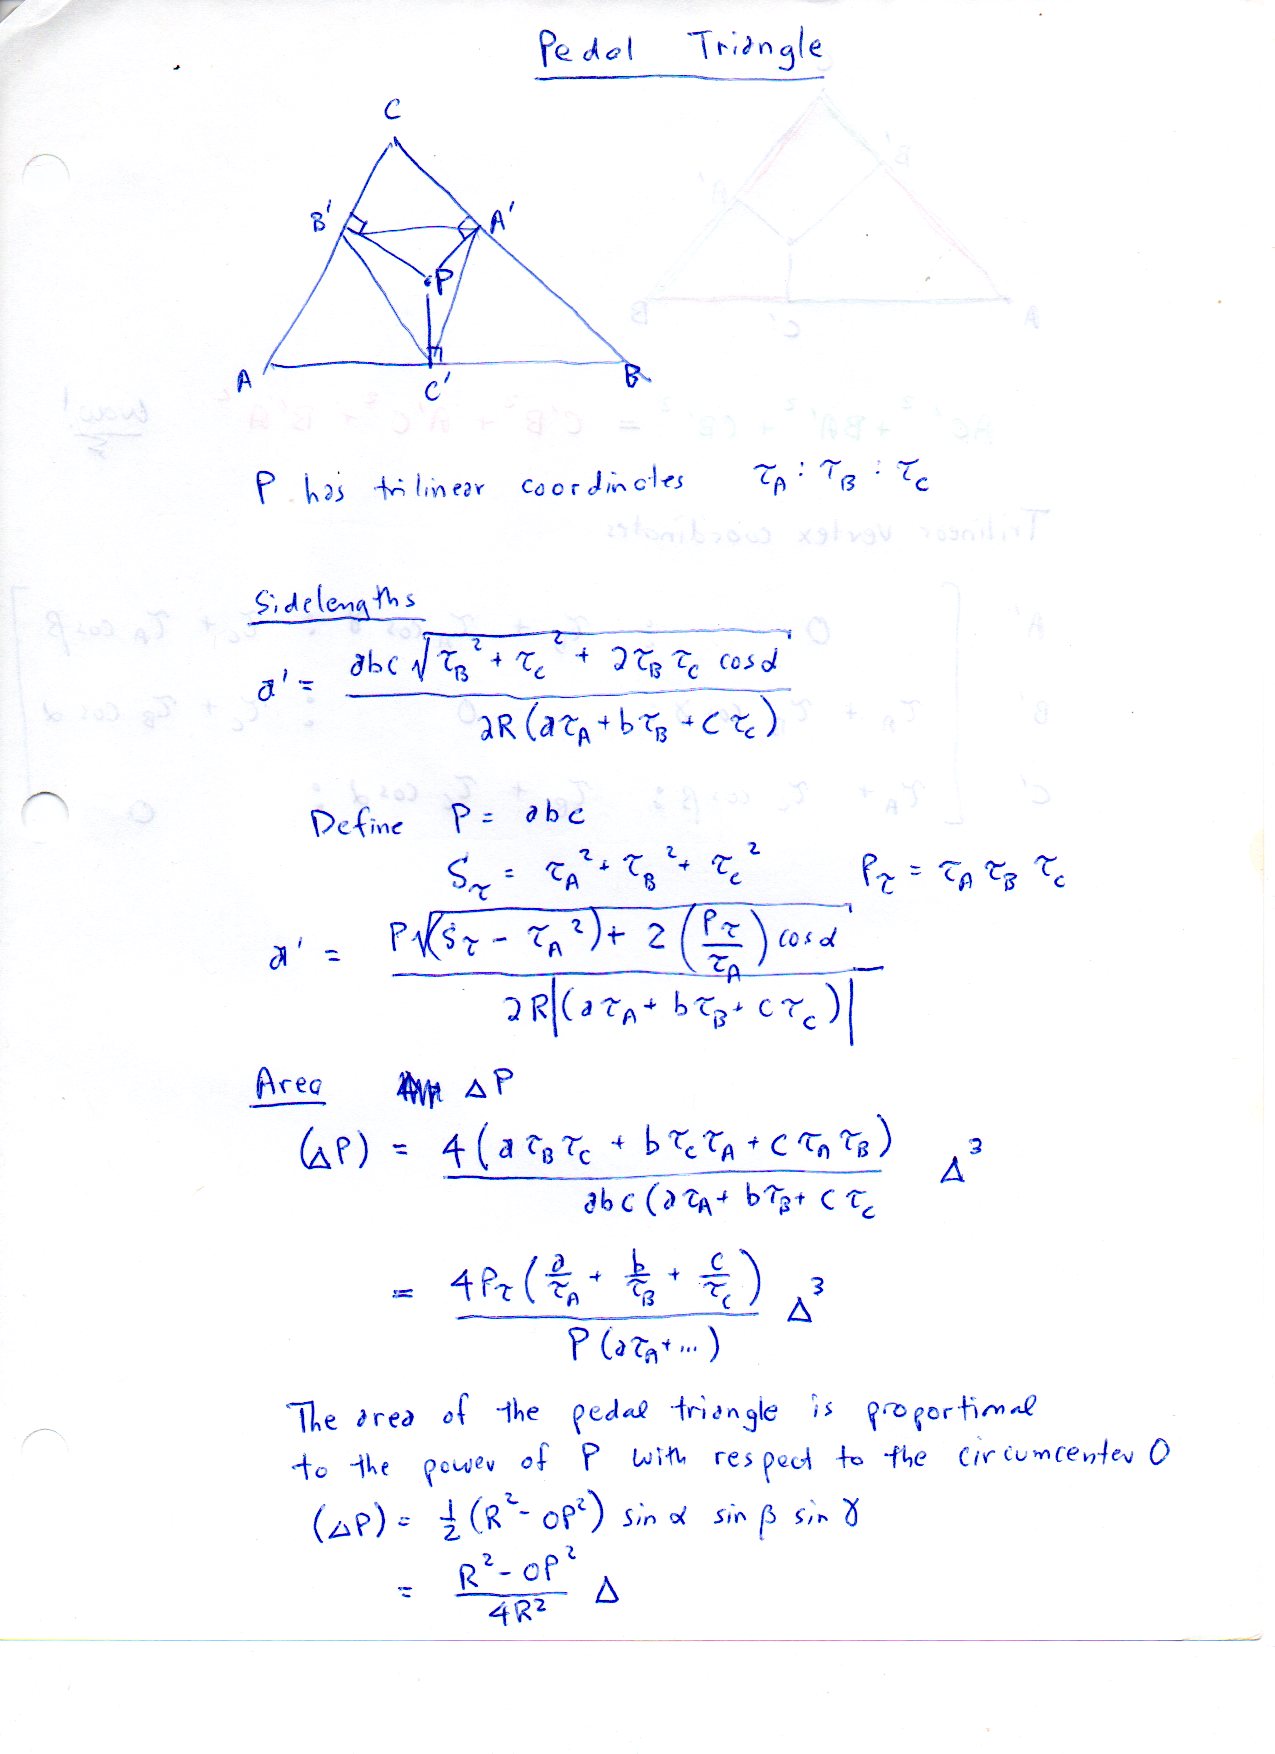 Pedal Triangle
C
B' A'
P
A C' B
P has trilinear coordinates τ_A : τ_B : τ_C
Sidelengths
a' = abc √(τ_B² + τ_C² + 2τ_B τ_C cos α) / 2R(aτ_A + bτ_B + cτ_C)
Define P = abc
S_τ = τ_A² + τ_B² + τ_C² P_τ = τ_A τ_B τ_C
a' = P√((S_τ - τ_A²) + 2(P_τ/τ_A) cos α) / 2R|(aτ_A + bτ_B + cτ_C)|
Area ΔP
(ΔP) = 4(aτ_Bτ_C + bτ_Cτ_A + cτ_Aτ_B) / abc(aτ_A + bτ_B + cτ_C Δ³
= 4P_τ(a/τ_A + b/τ_B + c/τ_C) / P(aτ_A + ...) Δ³
The area of the pedal triangle is proportional
to the power of P with respect to the circumcenter O
(ΔP) = 1/2 (R² - OP²) sin α sin β sin γ
= R² - OP² / 4R² Δ